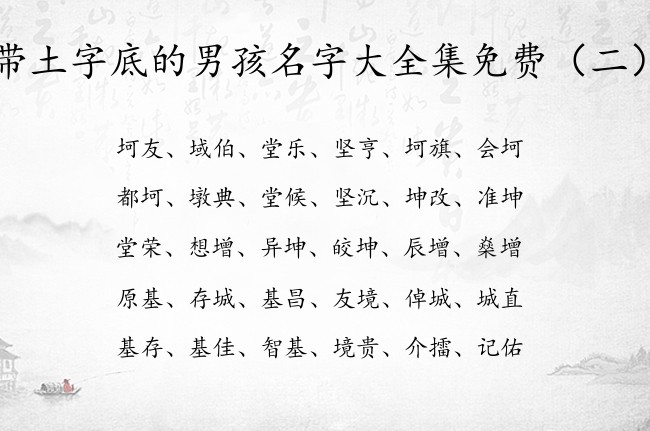 带土字底的男孩名字大全集免费（二）
坷友、域伯、堂乐、坚亨、坷旗、会坷
都坷、墩典、堂候、坚沉、坤改、准坤
堂荣、想增、异坤、皎坤、辰增、燊增
原基、存城、基昌、友境、倬城、城直
基存、基佳、智基、境贵、介擂、记佑